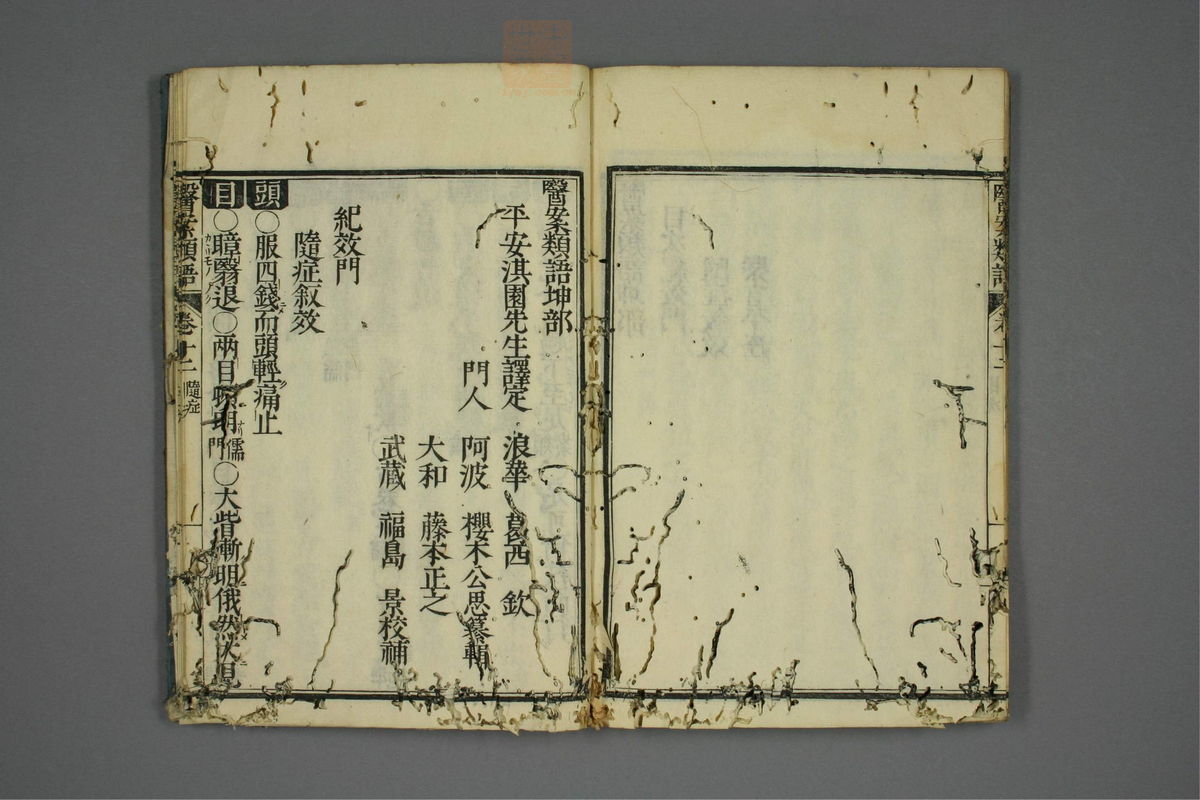 醫案類語坤部
平安淇園先生譯定 浪華 葛西 欽
門人 阿波 櫻木公思纂輯
大和 藤本正之
武藏 福島 景校補
紀效門
隨症叙效
頭 〇服四錢而頭輕痛止
目 〇瞕翳退〇兩目頓明儒門〇大眥漸明俄然大見
醫案類語 卷十二 隨症
醫案類語 卷十二